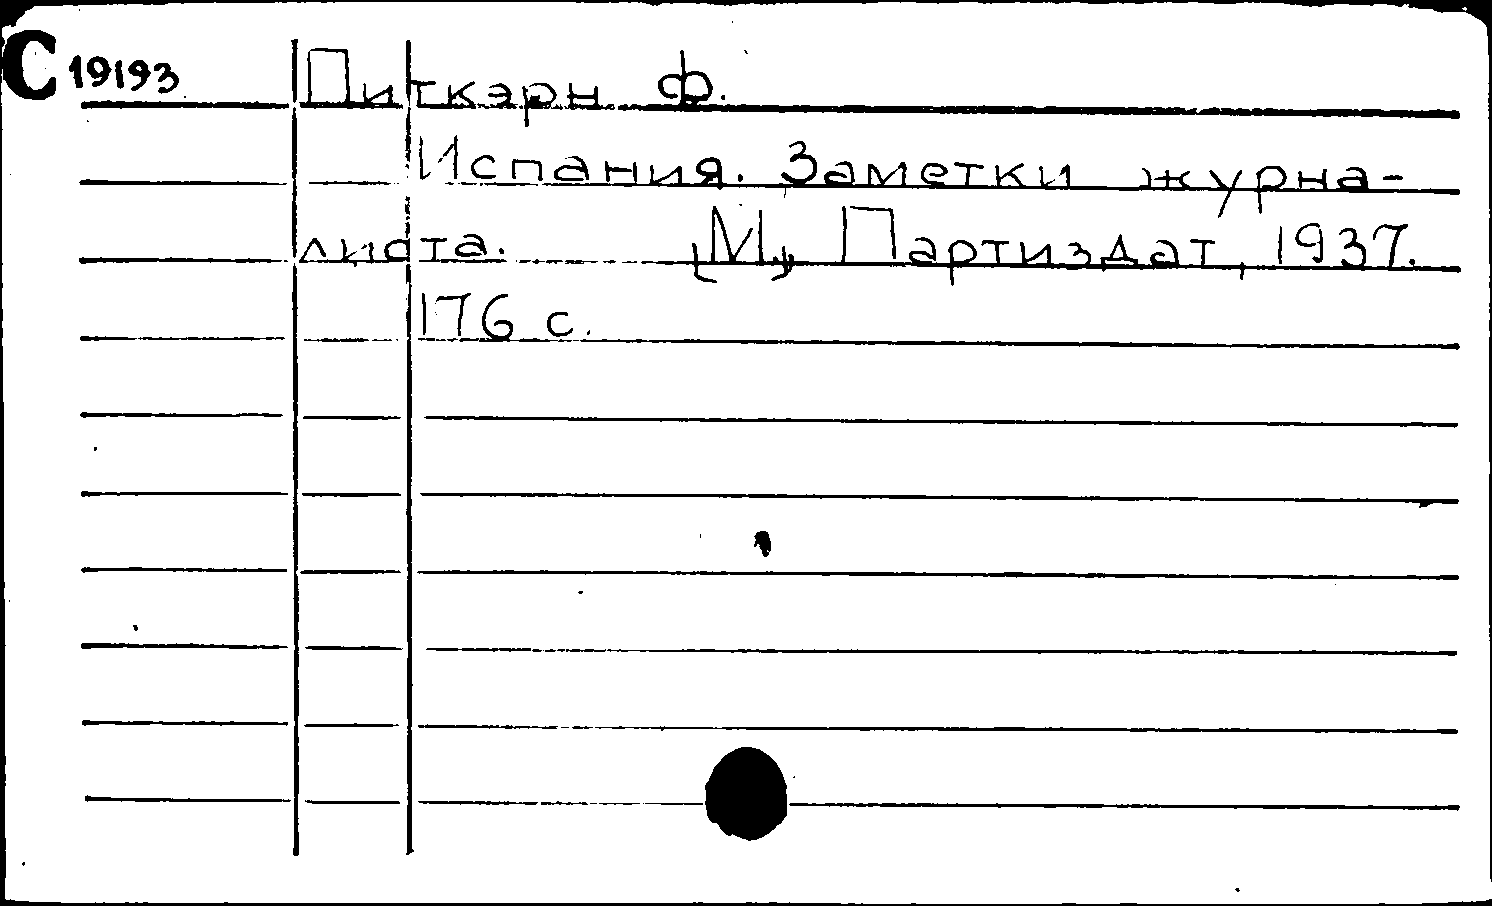 С 19193 Питкэрн Ф.
Испания. Заметки журна-
листа. [М.], Партиздат, 1937.
176 с.